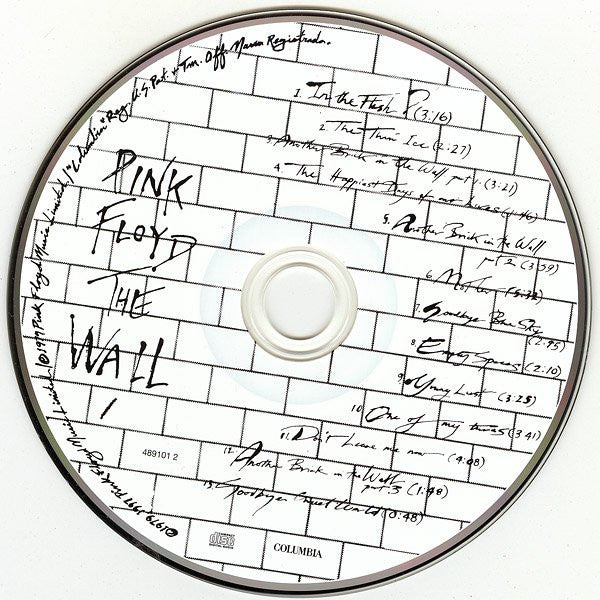 "Columbia" Reg. U.S. Pat. & Tm. Off. Marca Registrada.
PINK
FLOYD
THE
WALL
1
1. In the Flesh ? (3:16)
2. The Thin Ice (2:27)
3. Another Brick in the Wall part 1. (3:21)
4. The Happiest Days of our Lives (1:46)
5. Another Brick in the Wall
pt 2 (3:59)
6. Mother (5:32)
7. Goodbye Blue Sky
(2:45)
8. Empty Spaces (2:10)
9. Young Lust (3:25)
10. One of my turns (3:41)
11. Don't Leave me now (4:08)
12. Another Brick in the Wall
part 3 (1:48)
13. Goodbye Cruel World (0:48)
489101 2
©1979, 1997 Pink Floyd Music Limited / ℗1979 Pink Floyd Music Limited /
COMPACT
disc
DIGITAL AUDIO
COLUMBIA